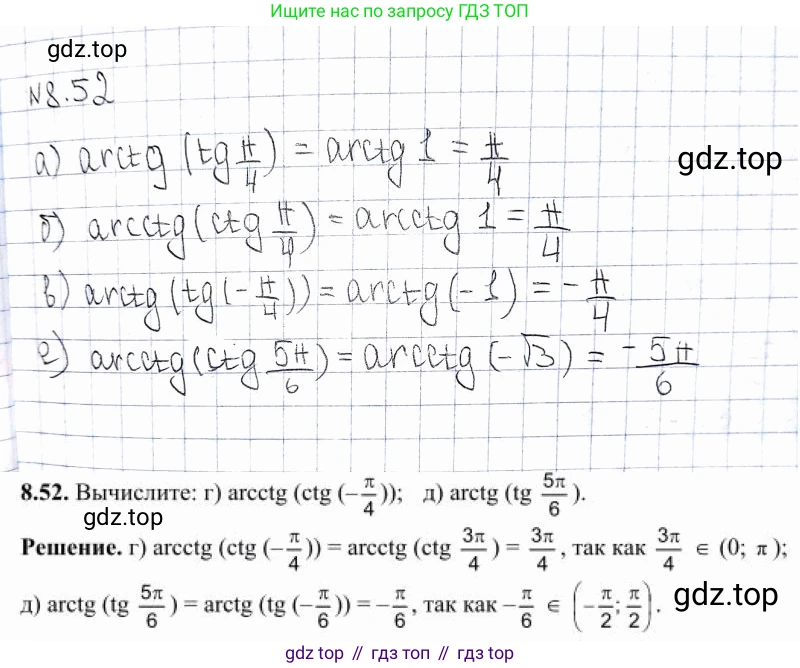 Ищите нас по запросу ГДЗ ТОП
gdz.top
№8.52
а) arctg (tg π/4) = arctg 1 = π/4
gdz.top
б) arcctg (ctg π/4) = arcctg 1 = π/4
в) arctg (tg (-π/4)) = arctg (-1) = -π/4
г) arcctg (ctg 5π/6) = arcctg (-√3) = -5π/6
8.52. Вычислите: г) arcctg (ctg (−π/4)); д) arctg (tg 5π/6).
gdz.top
Решение. г) arcctg (ctg (−π/4)) = arcctg (ctg 3π/4) = 3π/4, так как 3π/4 ∈ (0; π);
д) arctg (tg 5π/6) = arctg (tg (−π/6)) = −π/6, так как −π/6 ∈ (−π/2; π/2).
gdz.top
gdz.top // гдз.топ // гдз.top